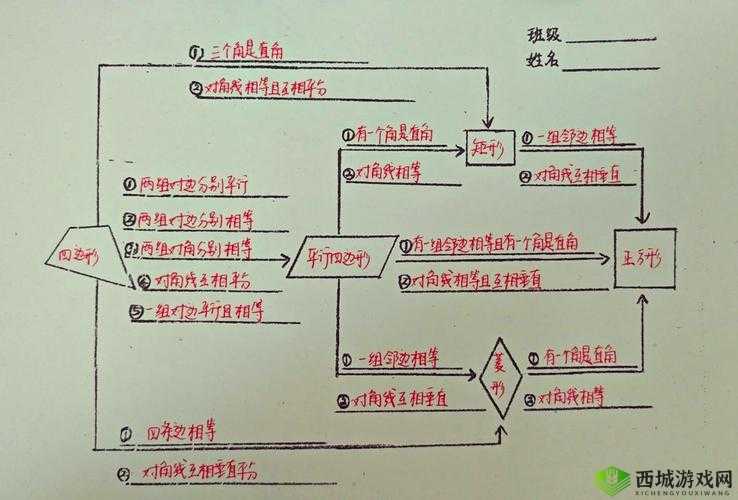 班级
姓名
① 三个角是直角
② 对角线相等且互相平分
① 有一个角是直角
② 对角线相等
矩形
① 一组邻边相等
② 对角线互相垂直
① 两组对边分别平行
② 两组对边分别相等
③ 两组对角分别相等
④ 对角线互相平分
⑤ 一组对边平行且相等
四边形
平行四边形
① 有一组邻边相等且有一个角是直角
② 对角线相等且互相垂直
正方形
① 一组邻边相等
② 对角线互相垂直
菱形
① 有一个角是直角
② 对角线相等
① 四条边相等
② 对角线互相垂直平分
西城游戏网
XICHENGYOUXIWANG